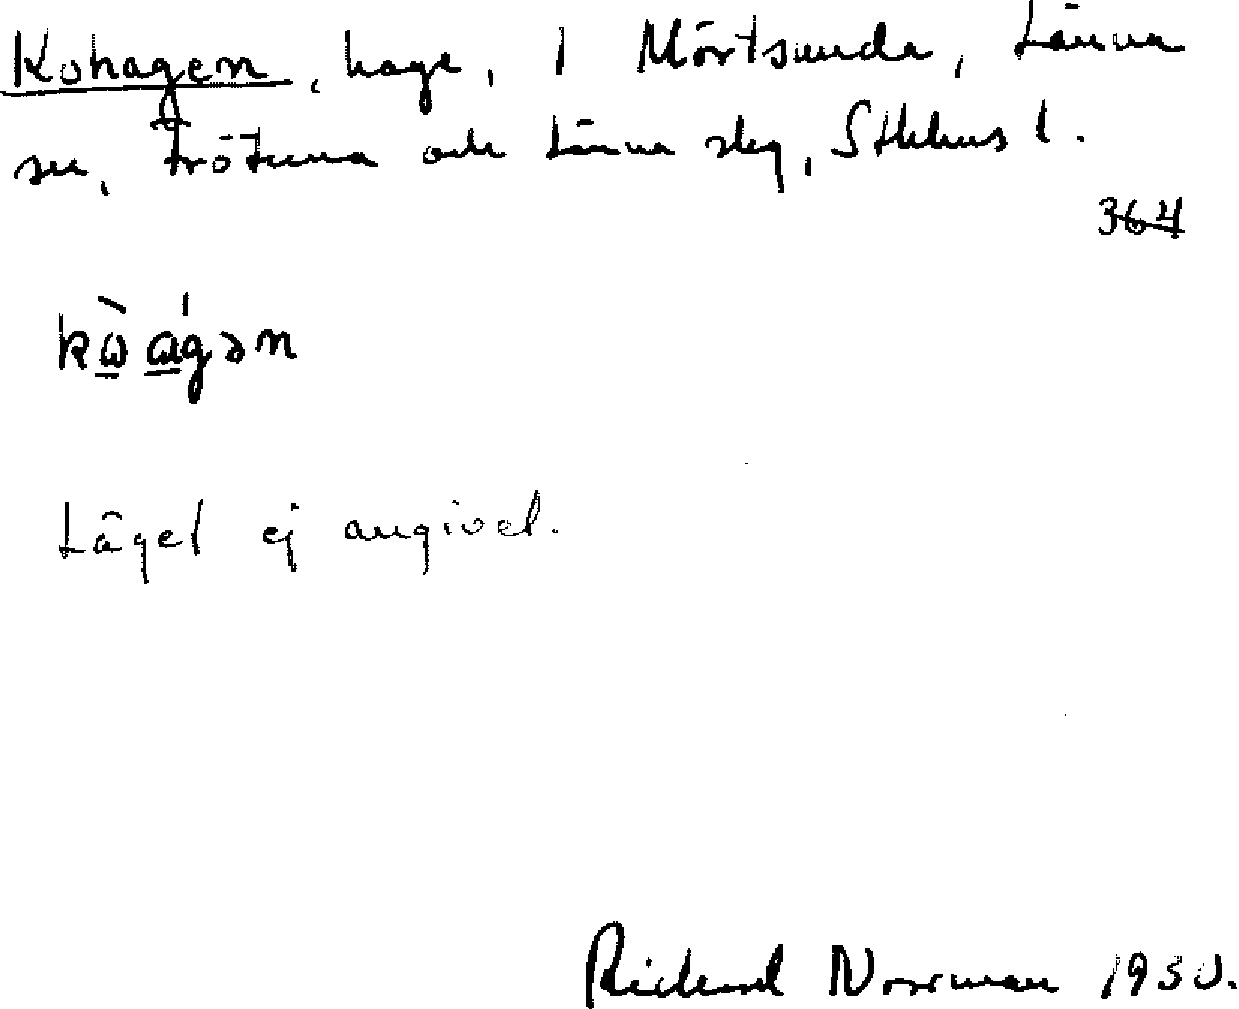 Kohagen, hage, i Mörtsunda, Länna
sn, Frötuna och Länna skg, Sthlms l.
364
kὼ αgən
Läget ej angivet.
Rickard Norrman 1930.